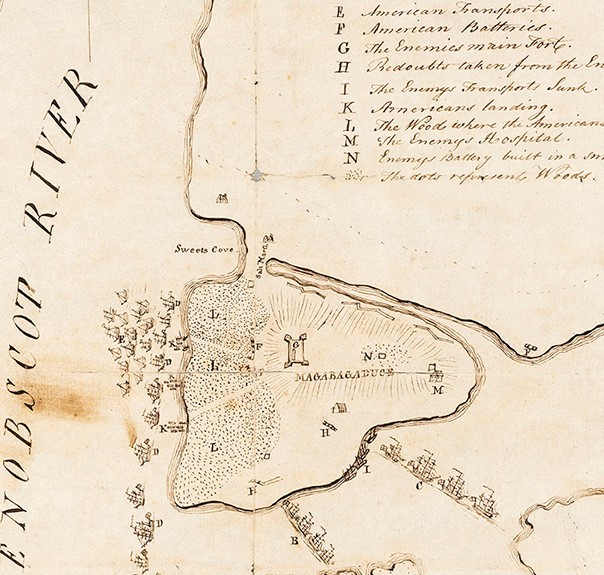 E American Transports.
F American Batteries.
G The Enemies main Fort.
H Redoubts taken from the En
I The Enemys Transports Sunk.
K Americans landing.
L The Wood where the Americans
M The Enemys Hospital.
N Enemys Battery built in a sm
The dots represents Woods.
ENOBSCOT RIVER
Sweets Cove
D
L
E
F
G
L
D
N
MAGABAGADUCE
D
M
K
H
L
D
I
C
F
D
B